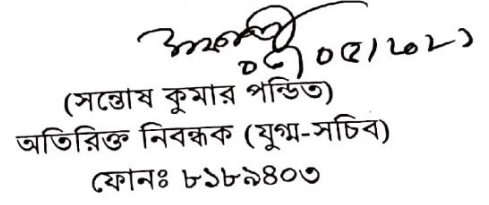 ০৫/০৫/২০২১
(সন্তোষ কুমার পন্ডিত)
অতিরিক্ত নিবন্ধক (যুগ্ম-সচিব)
ফোনঃ ৮১৮৯৪০৩